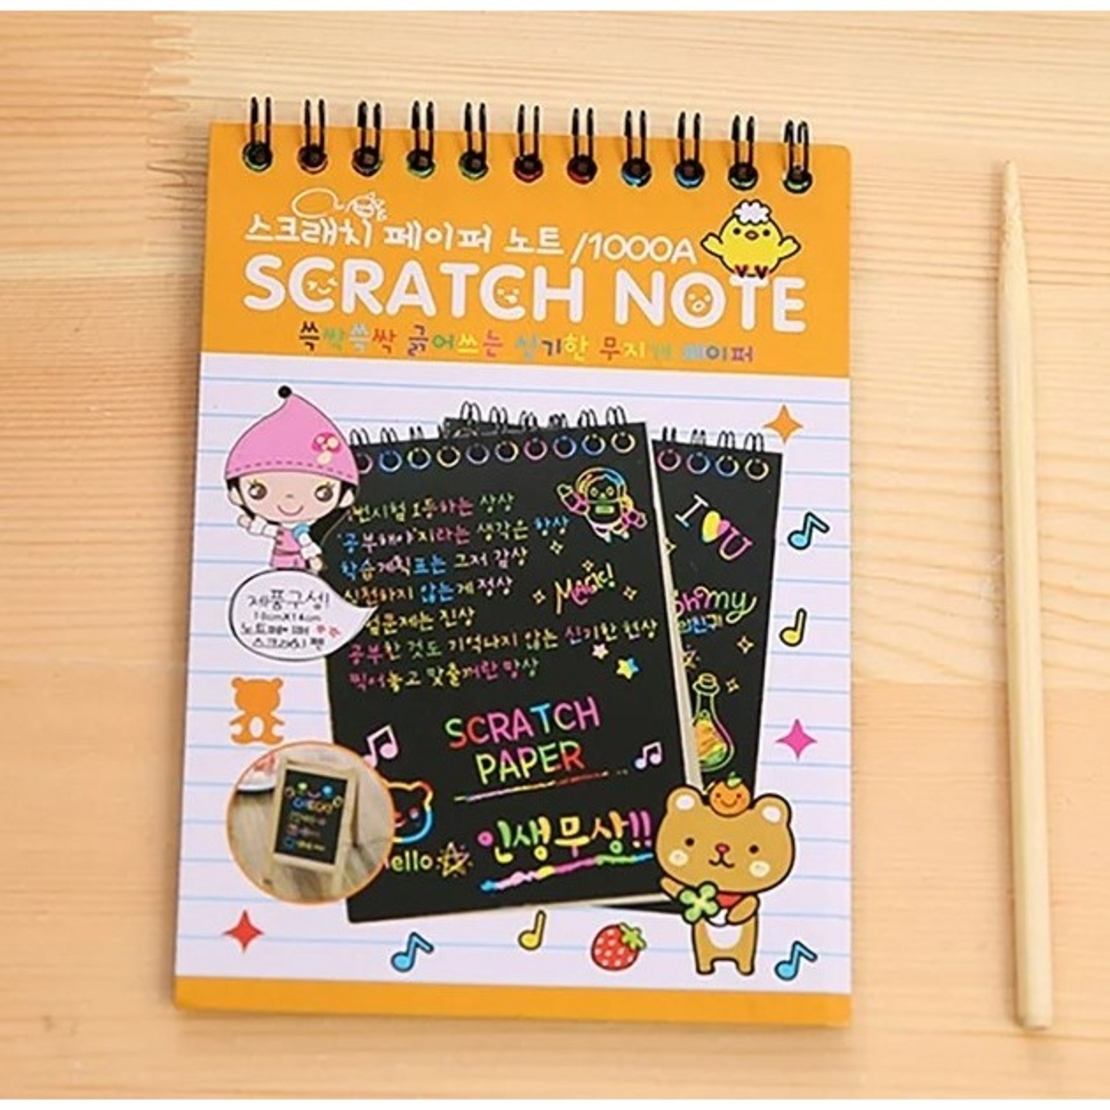 스크래치 페이퍼 노트 /1000A
SCRATCH NOTE
쓱싹쓱싹 긁어쓰는 신기한 무지개 페이퍼
제품구성!
10cmX14cm
노트페이퍼
스크래치 펜
번시험 1등하는 상상
'공부해야'지라는 생각은 항상
학습계획표는 그저 감상
실천하지 않는게 정상
험문제는 진상
공부한 것도 기억나지 않는 신기한 현상
찍어놓고 맞출꺼란 망상
MAGIC!
SCRATCH
PAPER
ello
인생무상!!
I U
oh my